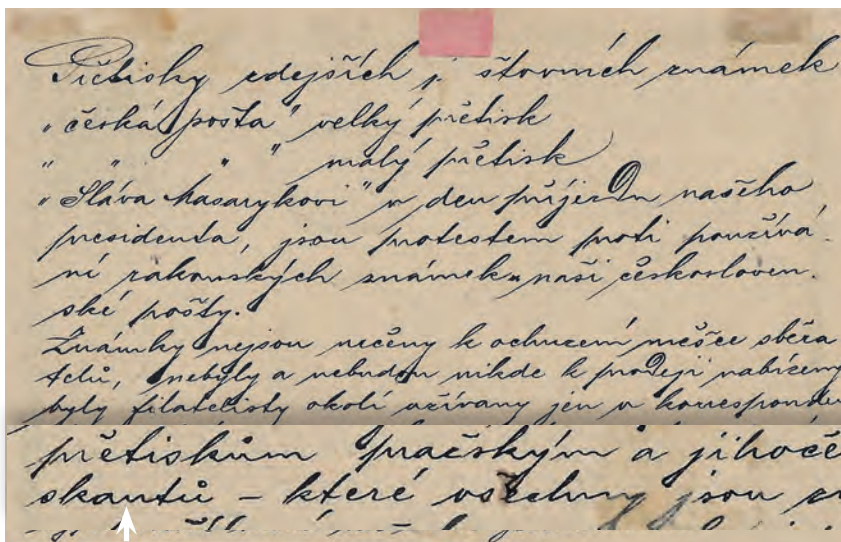 Přetisky zdejších j. štovních známek
„česká pošta" velký přetisk
" " " " malý přetisk
„Sláva Masarykovi" v den příjezdu našeho
presidenta, jsou protestem proti používá-
ní rakouských známek naší českosloven.
ské pošty.
Známky nejsou určeny k ochuzení měšce sběra
telů, nebyly a nebudou nikde k prodeji nabízeny
byly filatelisty okolí užívany jen v korresponden
přetiskům pražským a jihoče
skautů – které všechny jsou